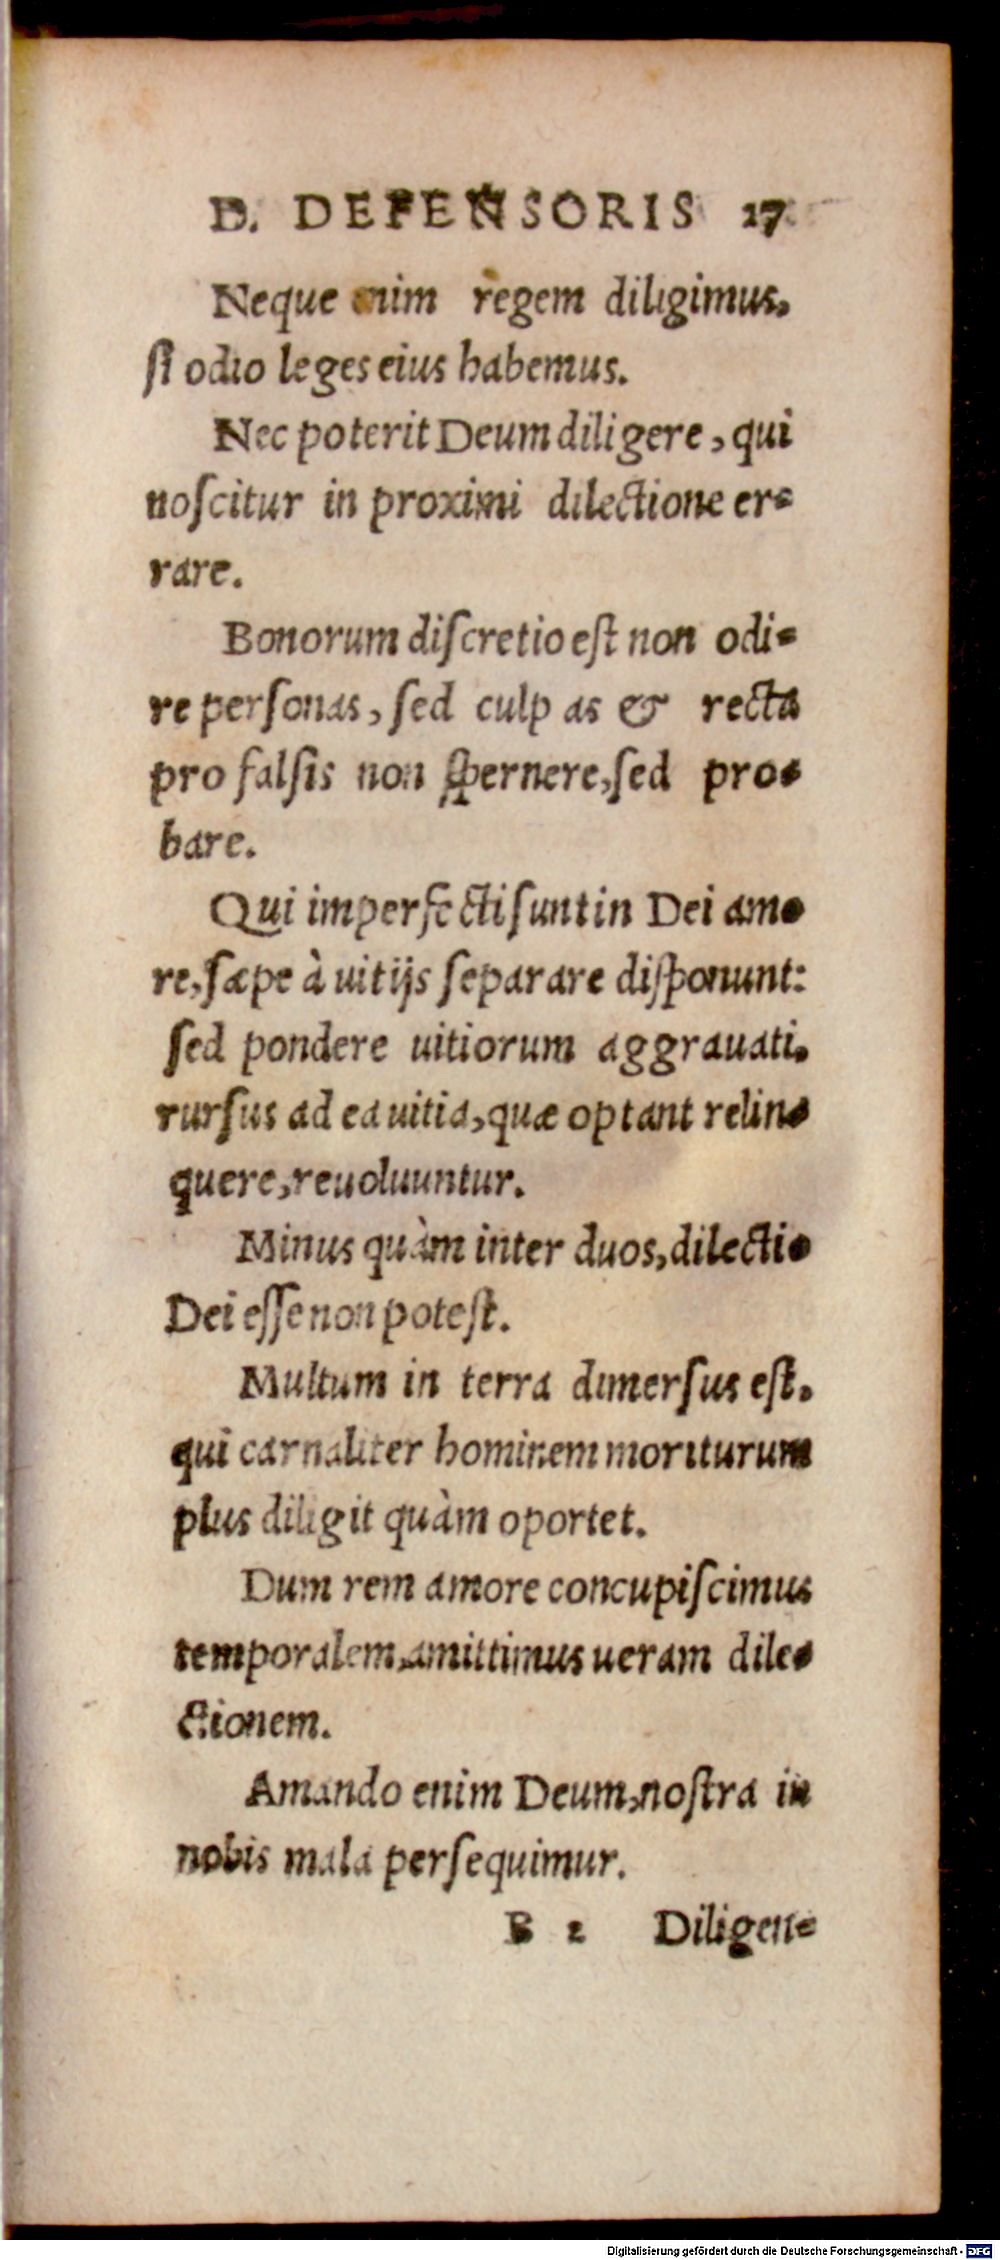 D. DEFENSORIS 17
Neque enim regem diligimus,
ſi odio leges eius habemus.
Nec poterit Deum diligere, qui
noſcitur in proximi dilectione er-
rare.
Bonorum diſcretio eſt non odi-
re perſonas, ſed culpas & recta
pro falſis non ſpernere, ſed pro-
bare.
Qui imperfecti ſunt in Dei amo
re, ſæpe à uitijs ſeparare diſponunt:
ſed pondere uitiorum aggrauati,
rurſus ad ea uitia, quæ optant relin-
quere, reuoluuntur.
Minus quàm inter duos, dilectio
Dei eſſe non poteſt.
Multum in terra dimerſus eſt,
qui carnaliter hominem moriturum
plus diligit quàm oportet.
Dum rem amore concupiſcimus
temporalem, amittimus ueram dile-
ctionem.
Amando enim Deum, noſtra in
nobis mala perſequimur.
B 2 Diligen-
Digitalisierung gefördert durch die Deutsche Forschungsgemeinschaft - DFG